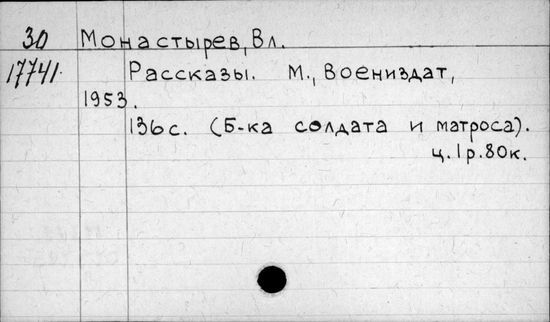 30 Монастырев, Вл.
17741. Рассказы. М., Воениздат,
1953.
136с. (Б-ка солдата и матроса).
ц. 1р. 80к.